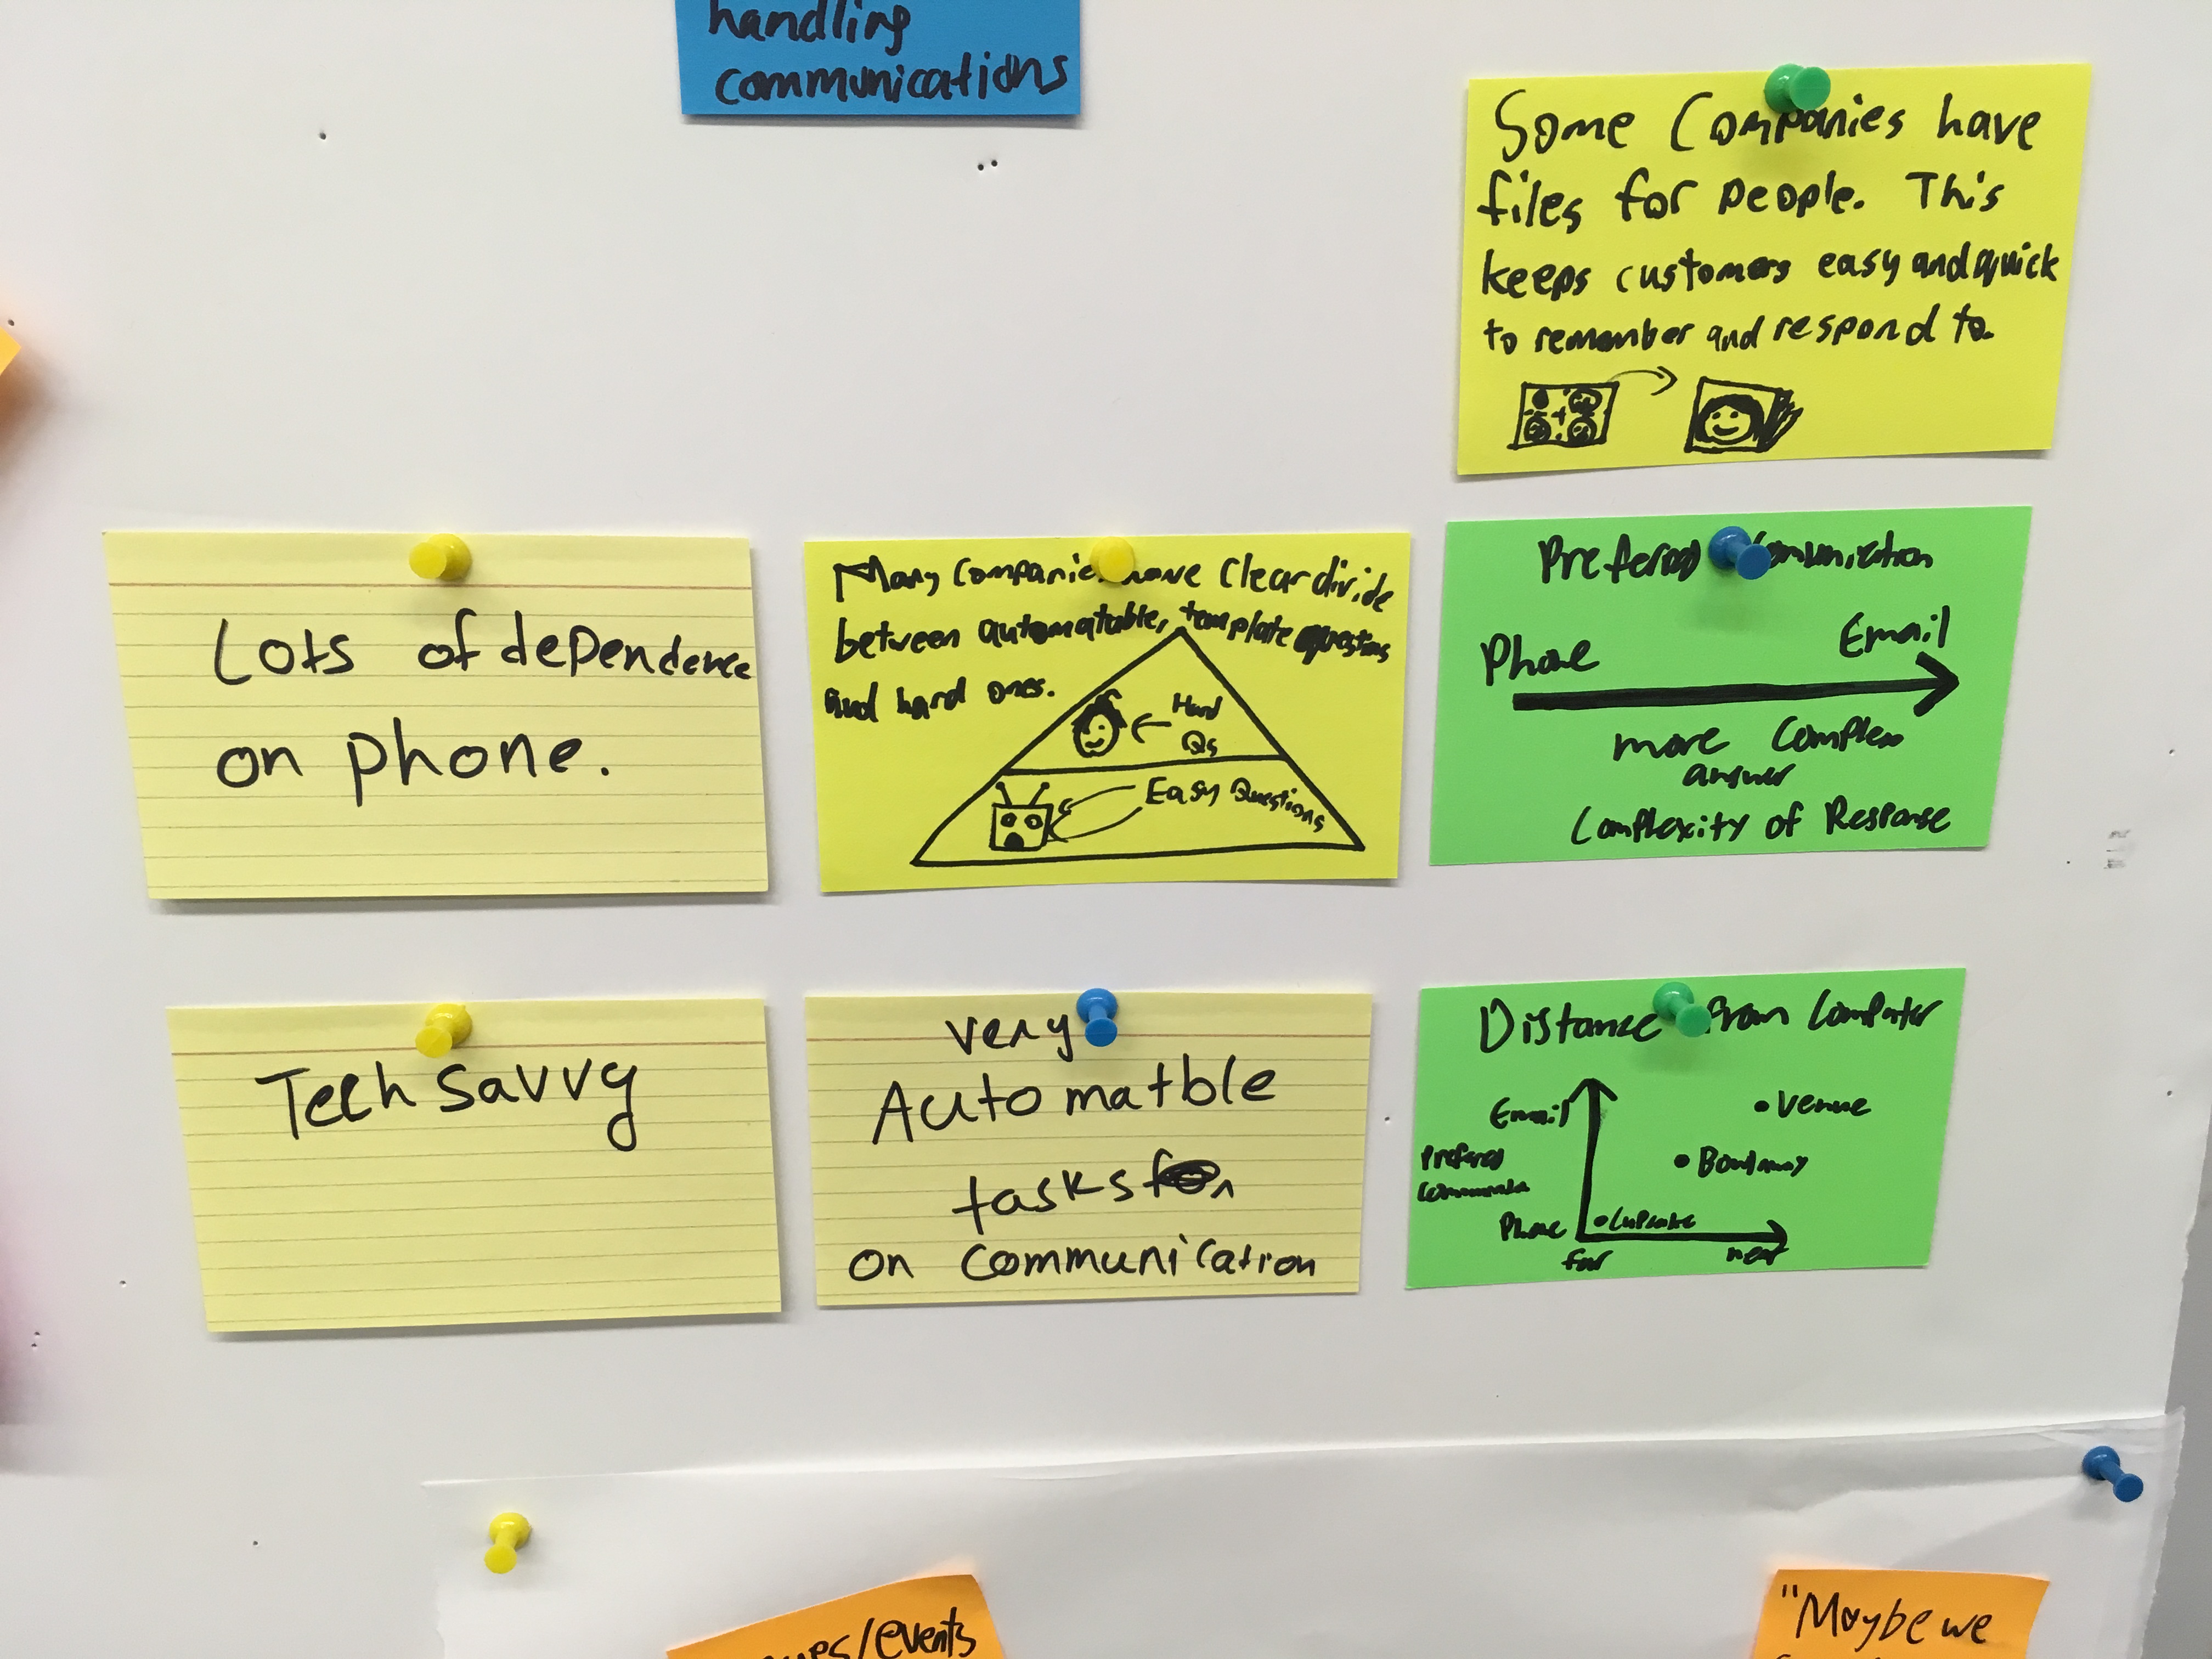 handling
communications
Some Companies have
files for people. This
keeps customers easy and quick
to remember and respond to.
Lots of dependence
on phone.
Many Companies have Clear divide
between automatable, template questions
and hard ones.
Hard
Qs
Easy Questions
Prefered
Phone
Email
more Complex
answer
Complexity of Response
Tech savvy
very
Automatble
tasks
on communication
Distance from Computer
Email
Venue
Prefered
Phone
Cupcake
far
near
/events
"Maybe we